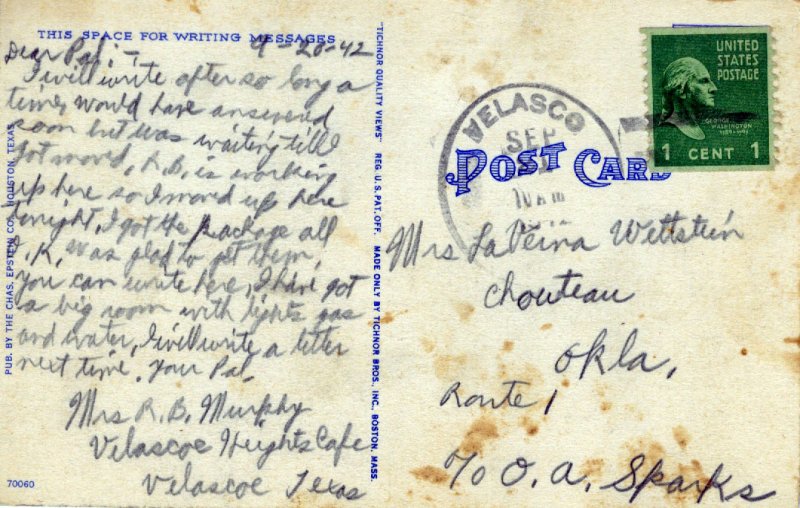 THIS SPACE FOR WRITING MESSAGES
9-20-42
Dear Pal:-
I will write after so long a
time, would have answered
soon but was waiting till I
got moved, R.B. is working
up here so I moved up here
tonight, I got the package all
O.K. was glad to get them,
you can write here, I have got
a big room with lights gas
and water, I will write a letter
next time. Your Pal.
Mrs R.B. Murphy
Velascoe Heights Cafe
Velascoe Texas
70060
PUB. BY THE CHAS. EPSTEIN CO., HOUSTON, TEXAS
"TICHNOR QUALITY VIEWS" REG. U.S. PAT. OFF. MADE ONLY BY TICHNOR BROS., INC., BOSTON, MASS.
UNITED
STATES
POSTAGE
GEORGE
WASHINGTON
1 CENT 1
VELASCO
SEP
10 AM
POST CARD
Mrs LaVeina Wettstein
Chouteau
Okla,
Route, 1
% O.A. Sparks